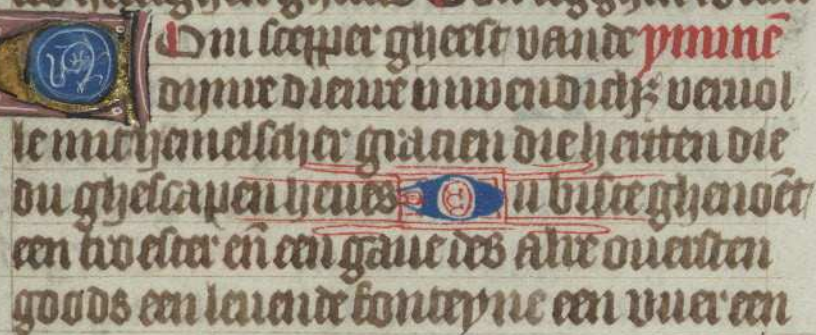 Om scepper gheest vande ymnnē
dijnre dienre inwendich; veruol
le mit hemelscher gracien die herten die
du ghescapen heues Du biste ghenoēt
een troester eñ een gaue des alre ouersten
goods een leuende fonteyne een vuer een